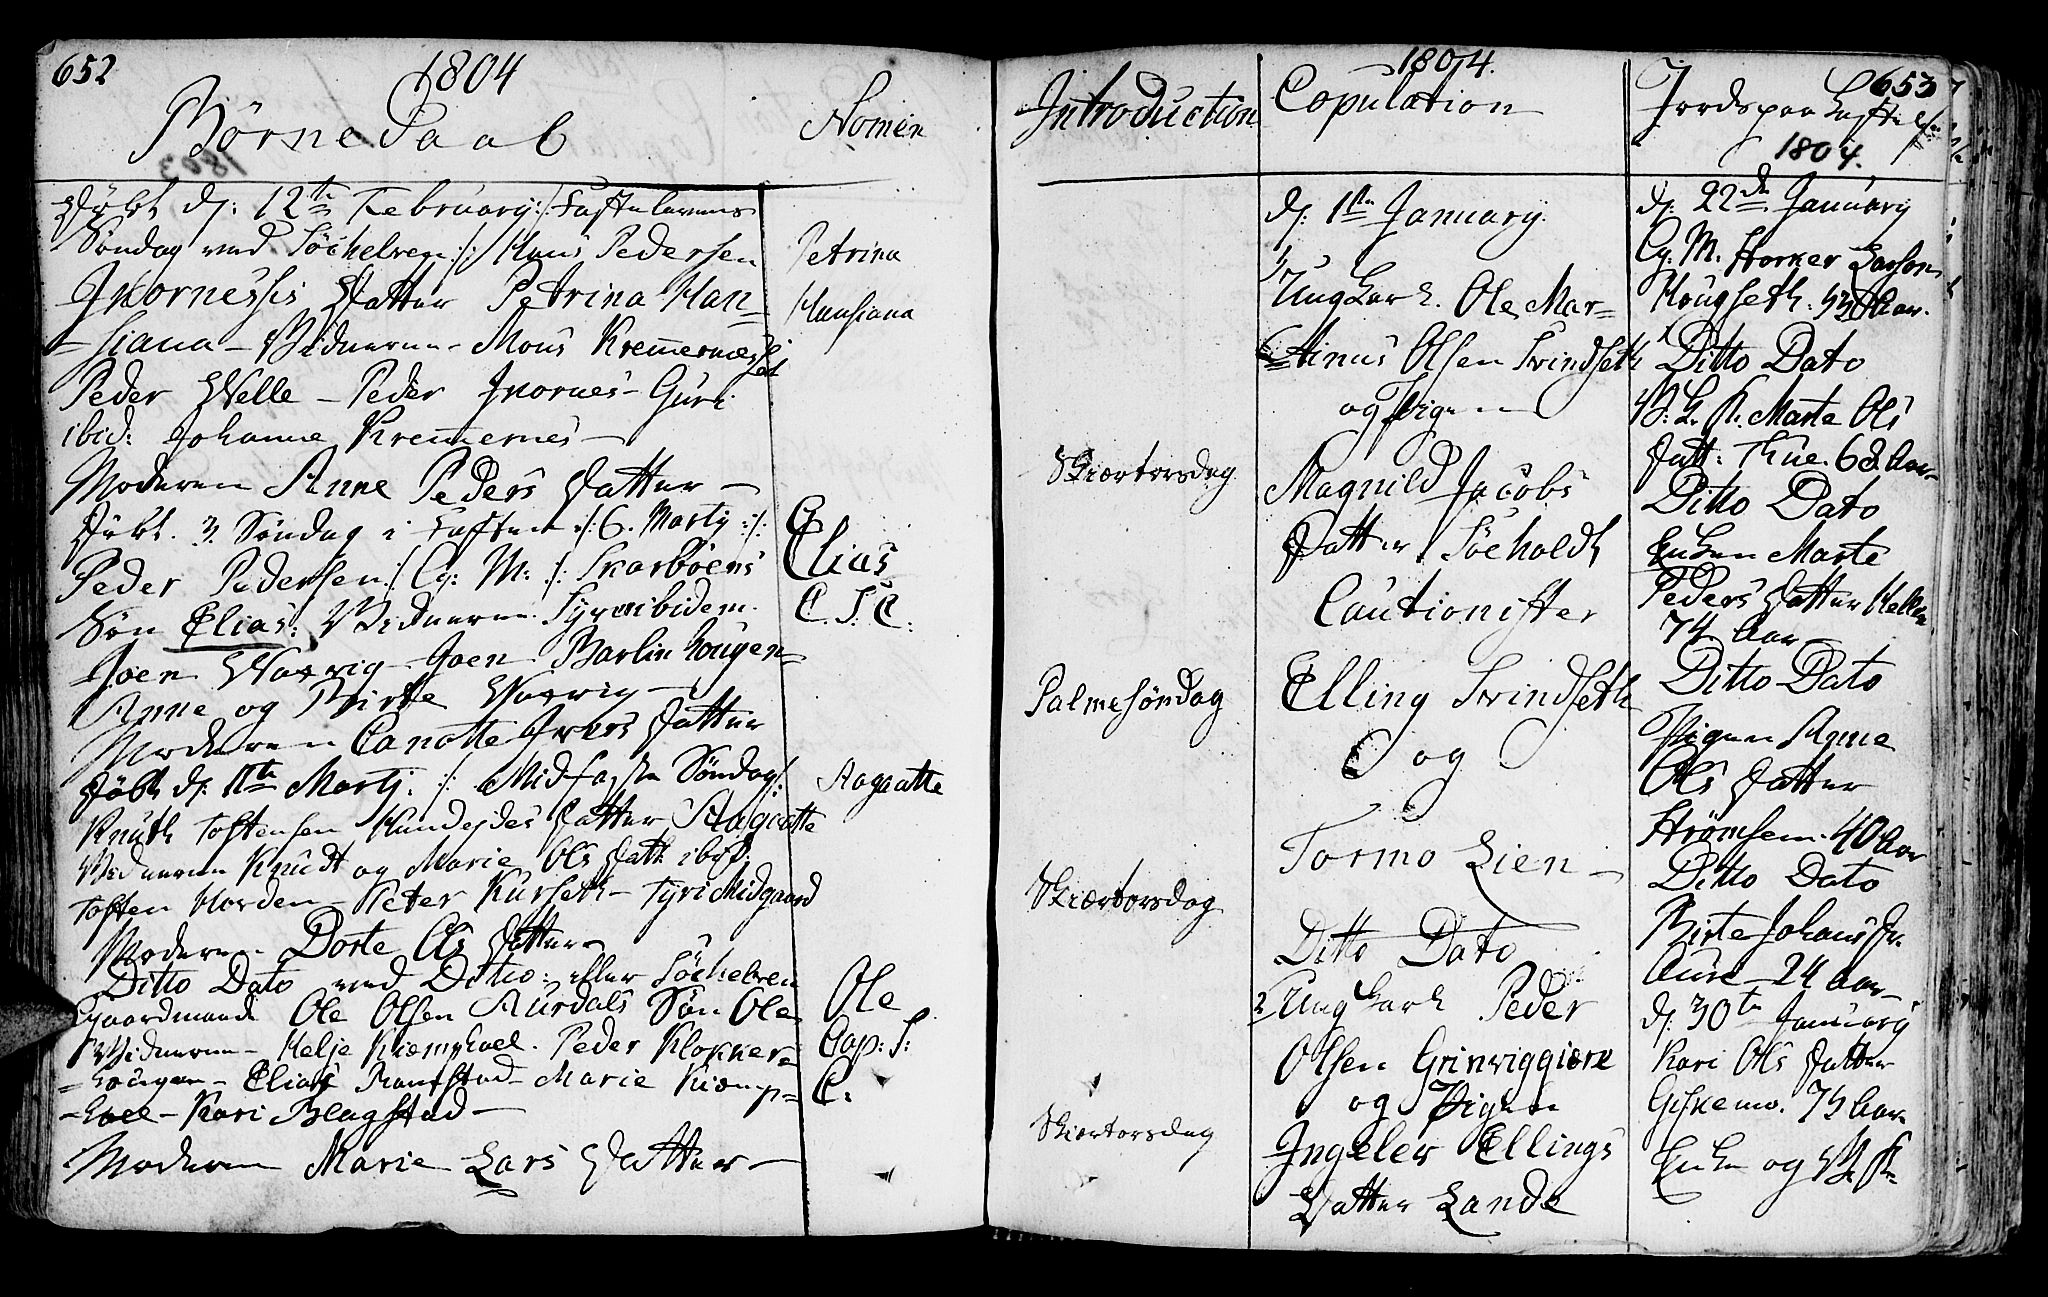 652
1804
Børne Daab
Nomen
Døbt d: 12te February :/: Fastelavens
Søndag ved Söchelven :/: Hans Pedersen
Ikornesses Datter Petrina Han=
=siana - Vidnerne - Mons Kremmernæsset
Peder Welle - Peder Ikornes - Guri
ibid: Johanne Kremmernes -
Moderen Anne Peders Datter -
Døbt. 3. Søndag i Fasten :/: 6. Martj :/:
Peder Pedersen :/: Cg: M: :/: Skarbøens
Søn Elias: Vidnerne. Syver ibidem.
Joen Warvig - Joen Barlinhougen=
Anne og Birthe Warvig -
Moderen Canotte Ivers Datter
Døbt d: 11te Martj: :/: Midfaste Søndag:/:
Knuth Toftensen Hundejdes Datter Aagaatte
Vidnerne Knudt og Marie Ols Datt: ibid:
Toften Horden - Peter Kurseth - Tyri Midgaard
Moderen Dorte Ols Datter -
Ditto Dato ved Ditto: eller Söchelven
Gaardmand Ole Olsen Aurdals Søn Ole
Vidnerne - Helje Kiemphoel. Peder Klokker=
=hougen - Elias Ramstad - Marie Kiemp=
=hoel - Kari Blagstad -
Moderen Marie Lars Datter -
Petrina
Hansiana
Elias
C. S. C.
Aagaatte
Ole
Cop: S:
C:
Introduction
Skiærtorsdag
Palmesöndag
Skiærtorsdag
Skiærtorsdag
1804.
Copulation
d: 1ste January.
1/ Ung Karl. Ole Mar=
=tinus Olsen Svindseth
og Pigen
Magnild Jacobs
Datter Söeholdt
Cautionister
Elling Svindseth
og
Tormo Lien -
Ditto Dato
2 Ung Karl Peder
Olsen Grinviggiære
og Pigen
Ingelev Ellings
Datter Lande
653
Jordspaa Kastelse
1804.
d: 22de January
Cg. M. Storker Larsen
Hougseth. 53 Aar.
Ditto Dato
Marte Ols
Datt: Thue. 68 Aar
Ditto Dato
Enken Marte
Peders Datter Hellen
74 Aar
Ditto Dato
Pigen Anne
Ols Datter
Strömhem. 40 Aar
Ditto Dato
Birte Johans Dr.
Aure - 24 Aar -
d: 30te January
Kari Ols Datter
Giskemo. 75 Aar
Enke og